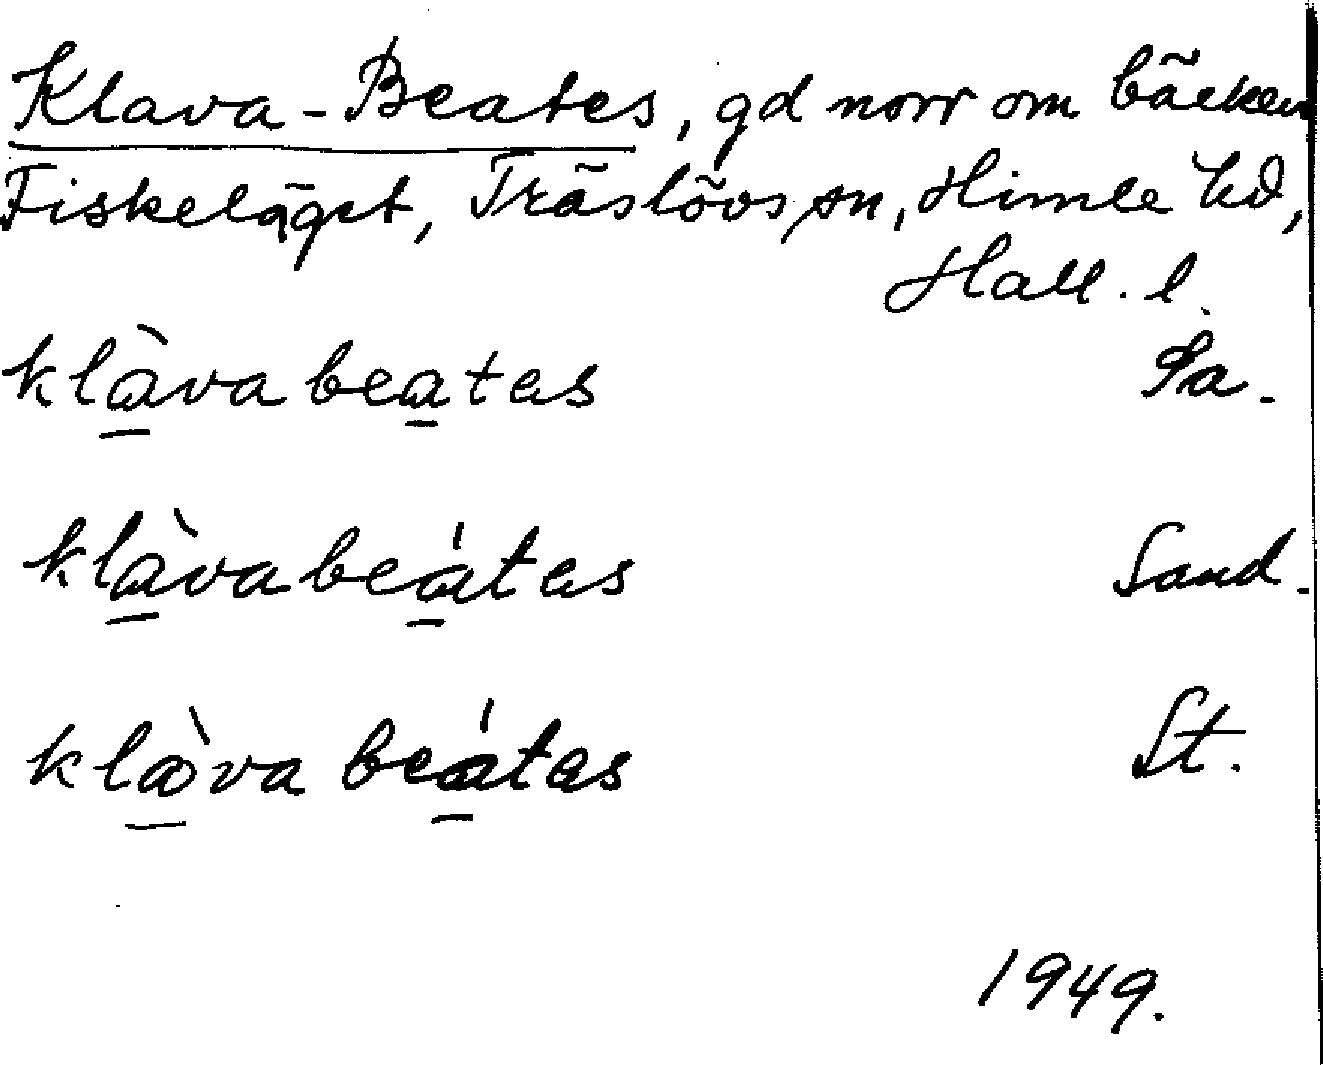 Klava-Beates, gd norr om bäcken
Fiskeläget, Träslövs sn, Himle hd,
Hall. l.
klàva beates Pa.
klàvabeátas Sand.
klàva beátas St.
1949.